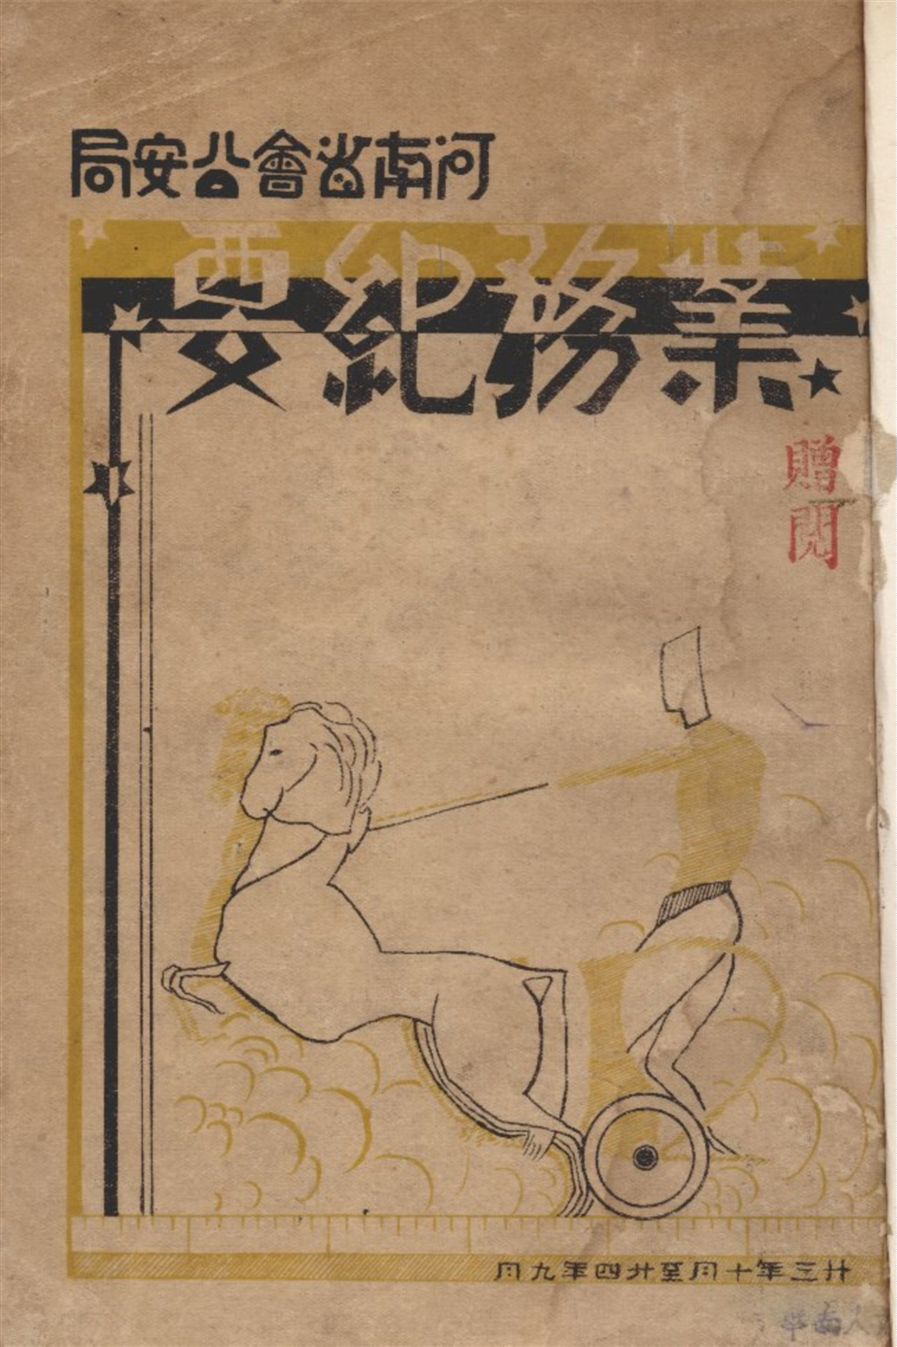 河南省會公安局
業務紀要
贈閱
廿三年十月至廿四年九月